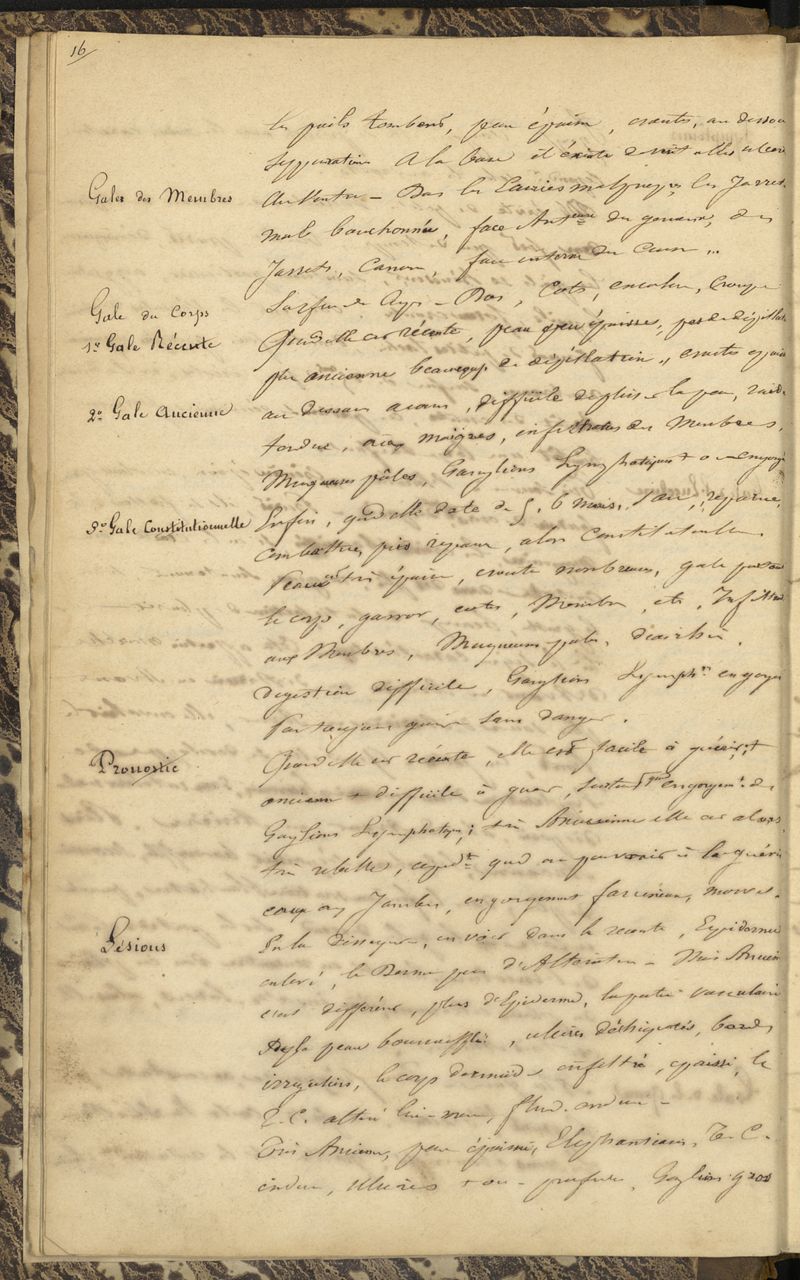 16
les poils tombent, peau épaisse, croutes, au dessous
suppuration A la base il existe
Gales des Membres
Au Ventre — Dans les Ecuries malpropres, les Jarrets
mal bouchonnés, face Antérieure du genoux, des
Jarrets, Canon, face interne du Canon ...
Gale du Corps
Surface du Corps — Dos, Cotes, encolure, Croupe
1º Gale Récente
Quand elle est récente, peau peu épaisse, peu de dépilation
plus ancienne beaucoup de dépilation, croutes épaisses
2º Gale Ancienne
au dessous, difficile de plisser la peau, raide
tendue, maigres, infiltration des Membres,
Muqueuses pâles, Ganglions Lymphatiques + ou - engorgés
3º Gale Constitutionnelle
Enfin, quand elle date de 5, 6 mois, reparue,
Combattue, puis reparue, alors Constitutionnelle
Peau très épaisse, croute nombreuses, gale partout
le corps, garrot, cotes, Membres, etc, Infiltration
aux Membres, Muqueuses pales, diarrhée,
digestion difficile, Ganglions Lymph. engorgés
Pas toujours guérie sans danger.
Pronostic
Quand elle est récente, elle est facile à guérir, +
ancienne + difficile à guérir, surtout quand engorgement des
Ganglions Lymphatiques; très Ancienne elle est alors
très rebelle, cependt quand on parvenait à la guérir
eaux aux Jambes, engorgements farcineux, morve.
Lésions
En la disséquant, on voit dans la récente, Epiderme
enlevé, le Derme peu d'Altération — Mais Ancienne
c'est différent, plus d'Epiderme, la partie vasculaire
de la peau boursoufflée, ulcères déchiquetés, bords
irréguliers, le corps dermoide infiltré, épaissi, le
T. C. altéré lui-même, induré —
Très Ancienne, peau épaissie, Elephantiasis, T. C.
induré, Ulcères + ou - profonds, Ganglions gros